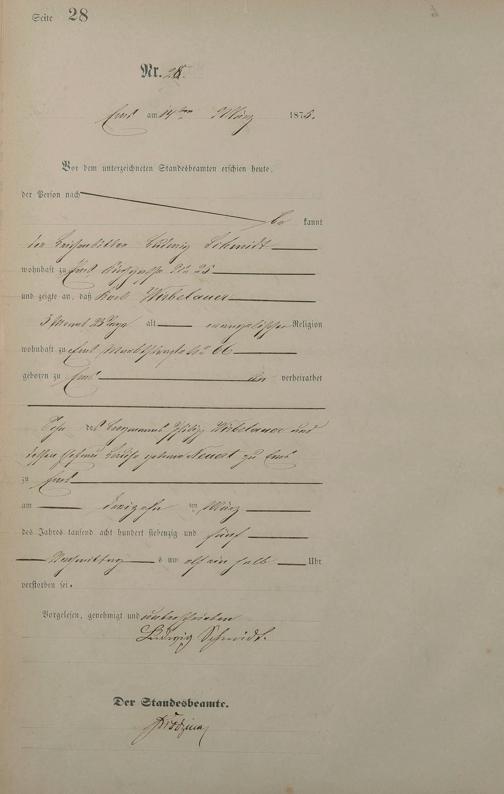 Seite 28
Nr. 28.
Ems am 14ten März 1875.
Vor dem unterzeichneten Standesbeamten erschien heute,
der Person nach
be kannt
der Leichenbitter Ludwig Schmidt
wohnhaft zu Ems No 25
und zeigte an, daß Karl Wirbelauer
3 Monat 23 Tage alt evangelischer Religion
wohnhaft zu Ems No 66
geboren zu Ems un verheirathet
Sohn des Bergmanns Philipp Wirbelauer und
dessen Ehefrau geborne zu Ems
zu Ems
am dreizehn ten März
des Jahres tausend acht hundert siebenzig und fünf
Vormittags um elf ein halb Uhr
verstorben sei.
Vorgelesen, genehmigt und unterschrieben
Ludwig Schmidt.
Der Standesbeamte.